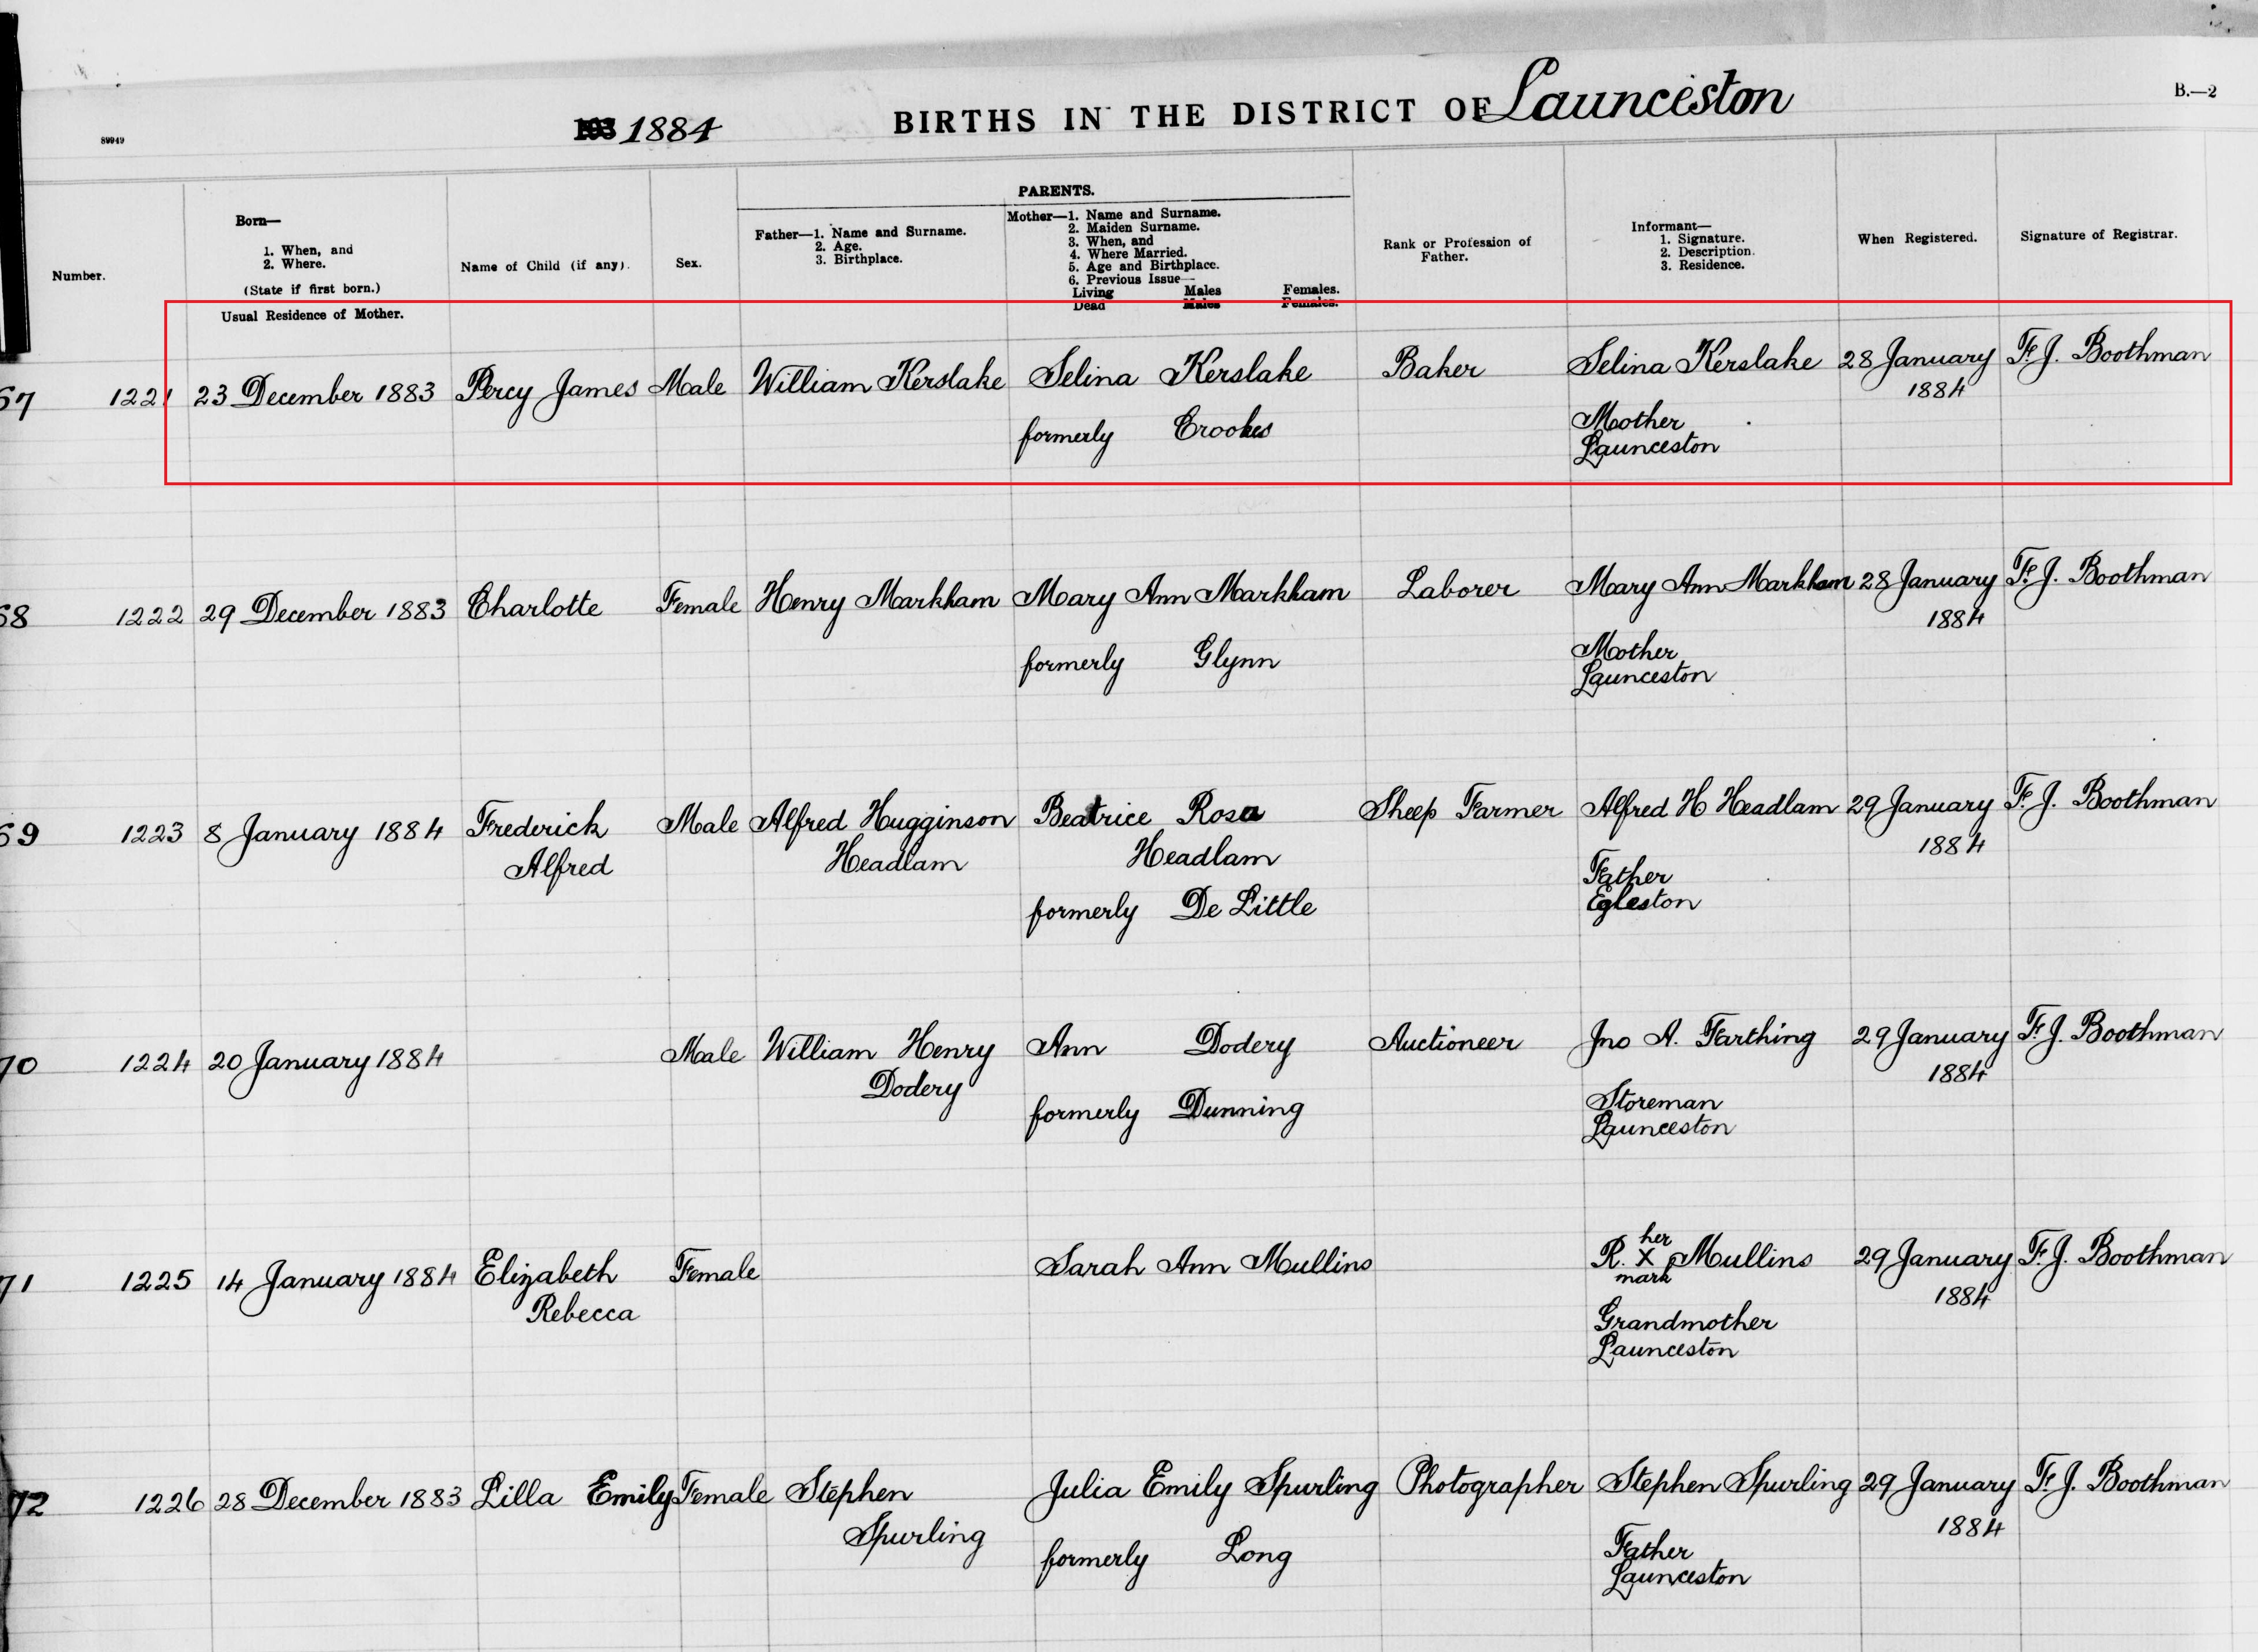 89949
1884
BIRTHS IN THE DISTRICT OF Launceston
B.—2
Number.
Born—
1. When, and
2. Where.
(State if first born.)
Usual Residence of Mother.
Name of Child (if any).
Sex.
PARENTS.
Father—1. Name and Surname.
2. Age.
3. Birthplace.
Mother—1. Name and Surname.
2. Maiden Surname.
3. When, and
4. Where Married.
5. Age and Birthplace.
6. Previous Issue—
Living Males Females.
Dead Males Females.
Rank or Profession of
Father.
Informant—
1. Signature.
2. Description.
3. Residence.
When Registered.
Signature of Registrar.
67 1221 23 December 1883 Percy James Male William Kerslake Selina Kerslake Baker Selina Kerslake 28 January F. J. Boothman
1884
formerly Crookes Mother
Launceston
68 1222 29 December 1883 Charlotte Female Henry Markham Mary Ann Markham Laborer Mary Ann Markham 28 January F. J. Boothman
1884
formerly Glynn Mother
Launceston
69 1223 8 January 1884 Frederick Male Alfred Hugginson Beatrice Rosa Sheep Farmer Alfred H Headlam 29 January F. J. Boothman
Alfred Headlam Headlam 1884
formerly De Little Father
Egleston
70 1224 20 January 1884 Male William Henry Ann Dodery Auctioneer Jno A. Farthing 29 January F. J. Boothman
Dodery 1884
formerly Dunning Storeman
Launceston
71 1225 14 January 1884 Elizabeth Female Sarah Ann Mullins R. her X mark Mullins 29 January F. J. Boothman
Rebecca 1884
Grandmother
Launceston
72 1226 28 December 1883 Lilla Emily Female Stephen Julia Emily Spurling Photographer Stephen Spurling 29 January F. J. Boothman
Spurling 1884
formerly Long Father
Launceston